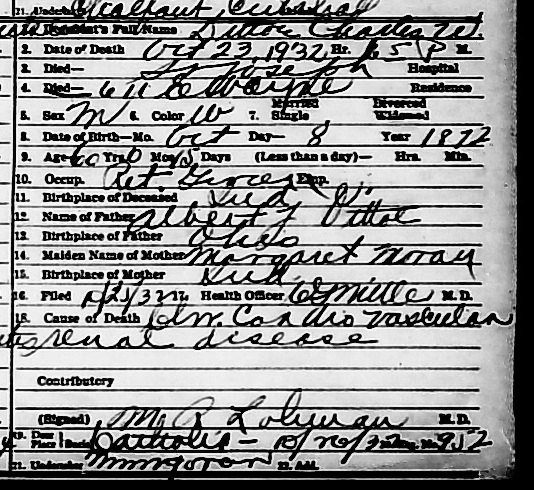 21. Undertaker
1. Decedent's Full Name Dittoe Charles W.
2. Date of Death Oct 23, 1932, Hr. 65 P M.
3. Died— St Joseph Hospital
4. Died— 611 E Wayne Residence
5. Sex M 6. Color W 7. Married Single Divorced Widowed
8. Date of Birth—Mo. Oct Day— 8 Year 1872
9. Age 60 Yrs. 0 Mos. 15 Days (Less than a day)— Hrs. Min.
10. Occup. Ret. Grocer Emp.
11. Birthplace of Deceased Ind
12. Name of Father Albert J Dittoe
13. Birthplace of Father Ohio
14. Maiden Name of Mother Margaret Moran
15. Birthplace of Mother Ind.
16. Filed Health Officer M. D.
18. Cause of Death Chr. Cardio vascular
renal disease
Contributory
(Signed) M. D.
19. Place Burial Catholic — 952
21. Undertaker 22. Add.